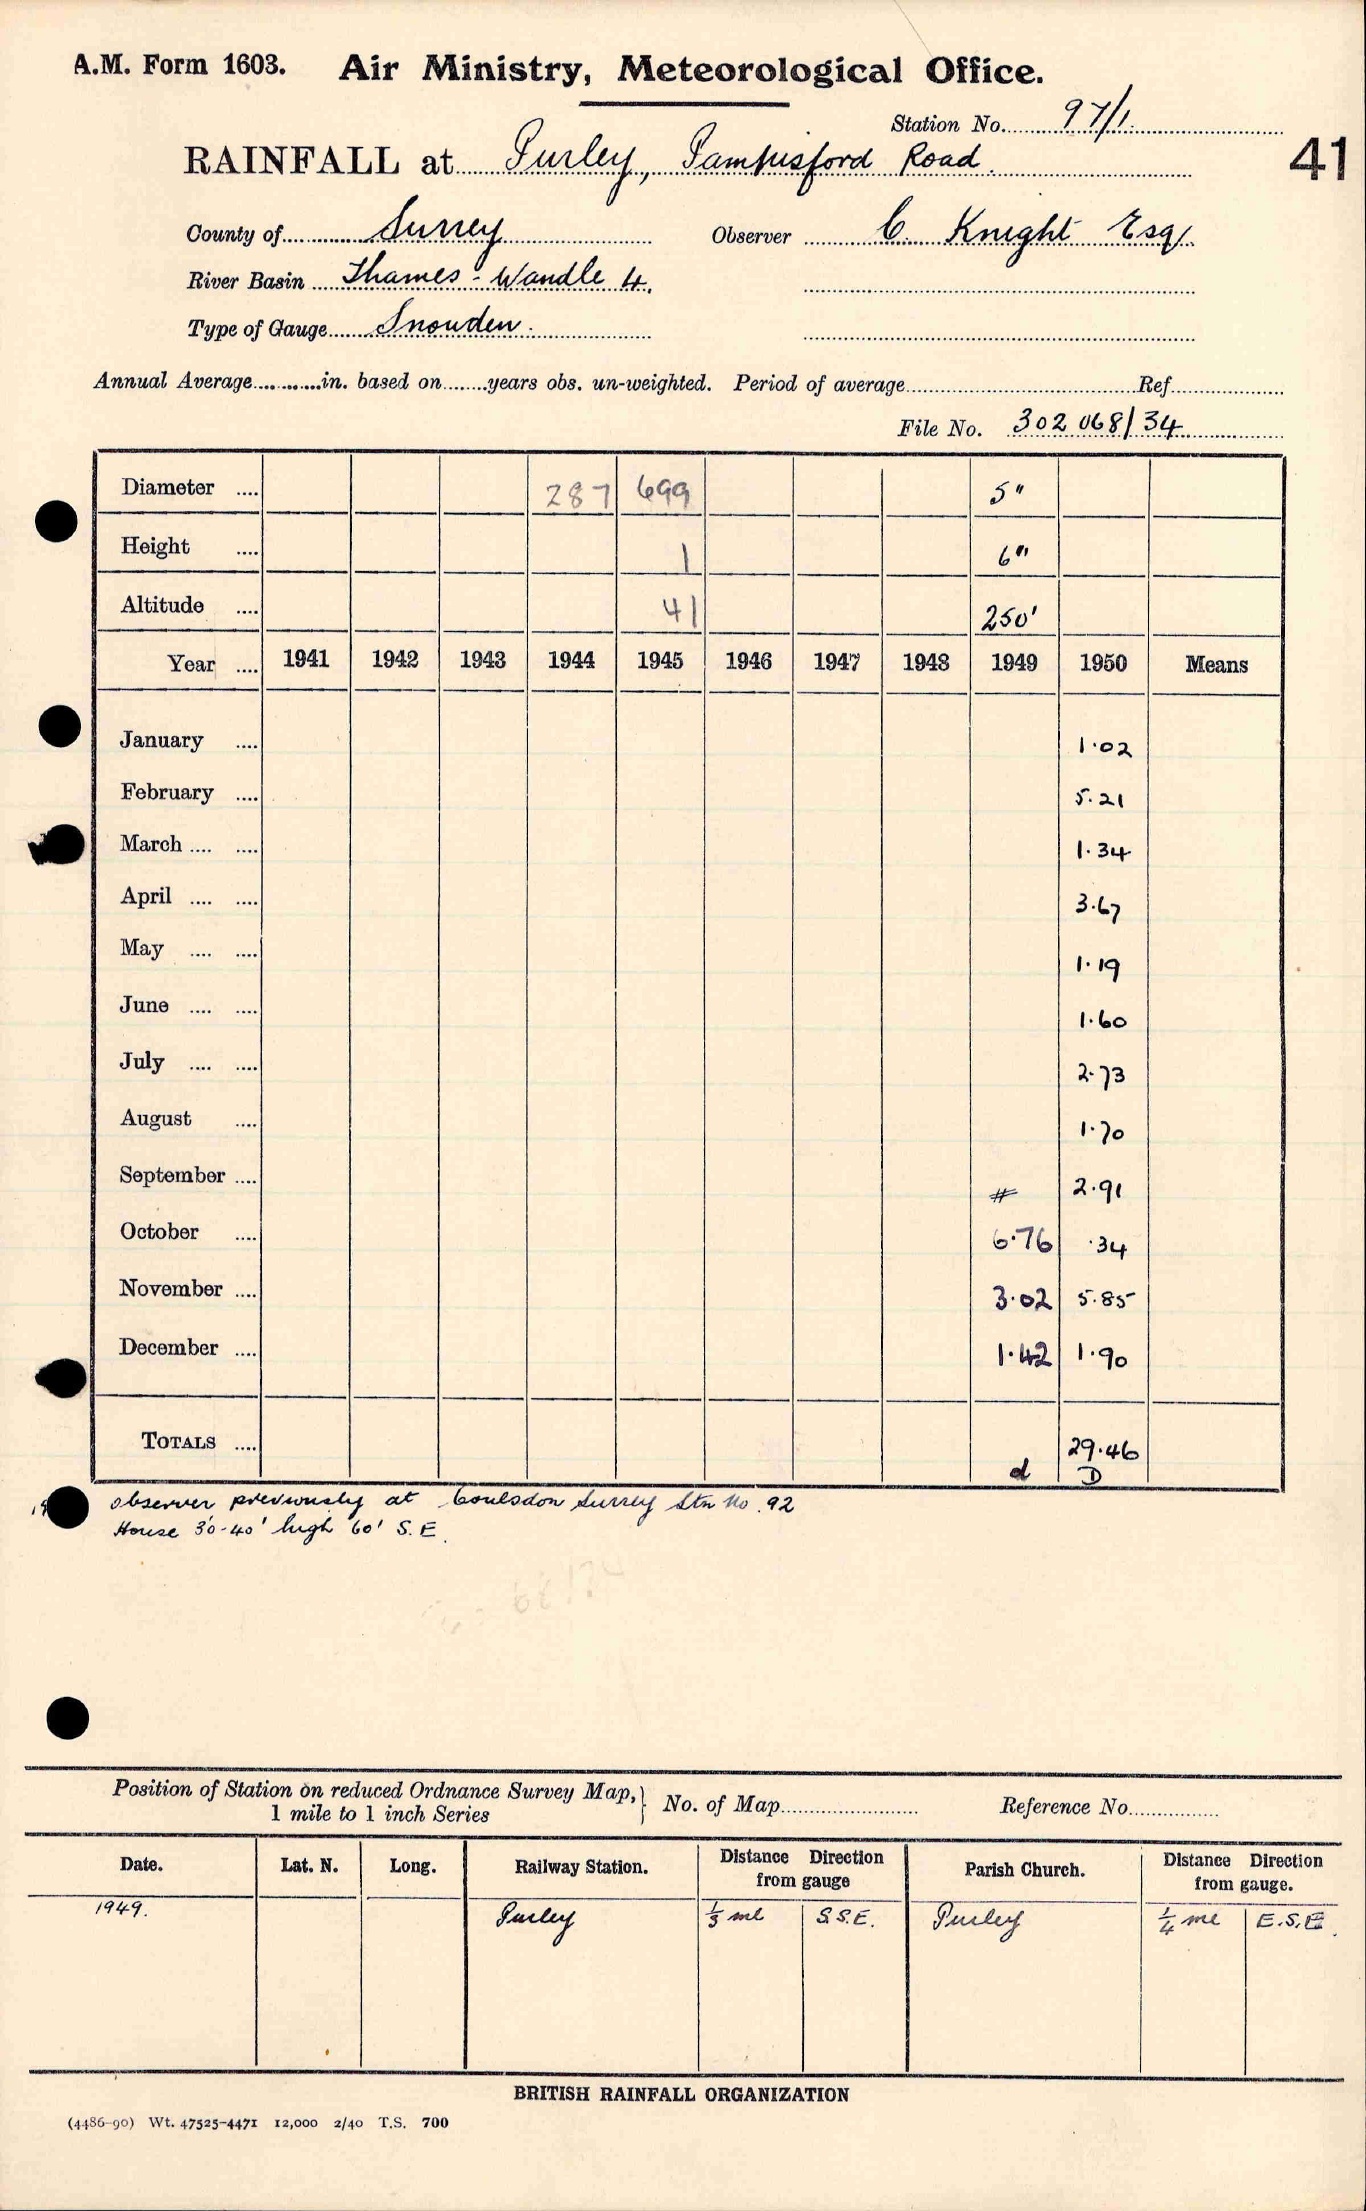 A.M. Form 1603. Air Ministry, Meteorological Office.
Station No. 97/1.
RAINFALL at Purley, Pampisford Road. 41
County of Surrey Observer C. Knight Esq.
River Basin Thames - Wandle 4.
Type of Gauge Snowden.
Annual Average............in. based on........years obs. un-weighted. Period of average............Ref............
File No. 302068/34
Diameter .... 287 699 5"
Height .... 1 6"
Altitude .... 41 250'
Year .... 1941 1942 1943 1944 1945 1946 1947 1948 1949 1950 Means
January .... 1.02
February .... 5.21
March .... .... 1.34
April .... .... 3.67
May .... .... 1.19
June .... .... 1.60
July .... .... 2.73
August .... 1.70
September .... # 2.91
October .... 6.76 .34
November .... 3.02 5.85
December .... 1.42 1.90
TOTALS .... 29.46
d D
Observer previously at Coulsdon Surrey Stn No. 92
House 30-40' high 60' S.E.
Position of Station on reduced Ordnance Survey Map, } No. of Map............ Reference No............
1 mile to 1 inch Series
Date. Lat. N. Long. Railway Station. Distance Direction from gauge Parish Church. Distance Direction from gauge.
1949. Purley 1/3 ml S.S.E. Purley 1/4 ml E.S.E.
BRITISH RAINFALL ORGANIZATION
(4486-90) Wt. 47525-4471 12,000 2/40 T.S. 700